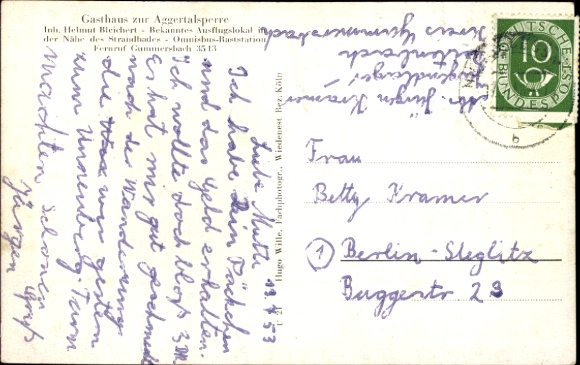 Gasthaus zur Aggertalsperre
Inh. Helmut Bleichert - Bekanntes Ausflugslokal in
der Nähe des Strandbades - Omnibus-Raststation
Fernruf Gummersbach 3513
Abs. Jürgen Kramer
Kreis Gummersbach
DEUTSCHE
BUNDESPOST
10
b
13. 53
Liebe Mutti
Ich habe Dein Päckchen
und das Geld erhalten.
Ich wollte doch bloß 3 DM.
Es hat mir gut geschmeckt
nach der Wanderung
die wir gestern
zum Unnenberg Turm
machten schönen
Gruß
Jürgen
Hugo Wille, Fachphotogr., Wiedenest Bez. Köln
Frau
Betty Kramer
1 Berlin-Steglitz
Buggestr 23